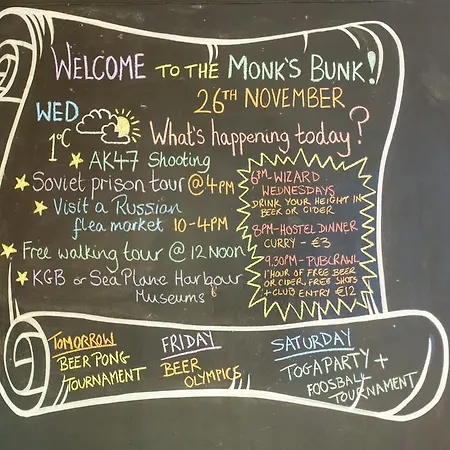 WELCOME TO THE MONK'S BUNK!
26TH NOVEMBER
WED
1°C
What's happening today?
AK47 Shooting
Soviet prison tour @ 4PM
Visit a Russian
flea market 10-4PM
Free walking tour @ 12 NOON
KGB or Sea Plane Harbour
Museums
6PM-WIZARD
WEDNESDAYS
DRINK YOUR HEIGHT IN
BEER OR CIDER
8PM-HOSTEL DINNER
CURRY - €3
9.30PM-PUBCRAWL
1 HOUR OF FREE BEER
OR CIDER, FREE SHOTS
+ CLUB ENTRY €12
TOMORROW
BEERPONG
TOURNAMENT
FRIDAY
BEER
OLYMPICS
SATURDAY
TOGAPARTY +
FOOSBALL
TOURNAMENT